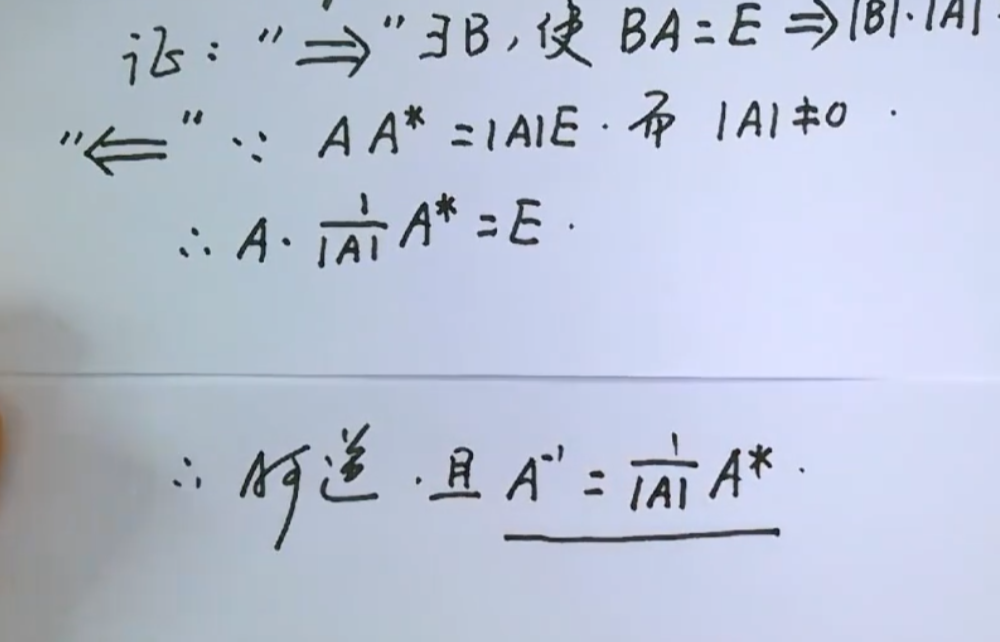 证: "⟹" ∃B, 使 BA=E ⟹ |B|·|A|
"⟸" ∵ AA* =|A|E · 而 |A|≠0 ·
∴ A· 1/|A| A* = E ·
∴ A可逆 · 且 A⁻¹ = 1/|A| A* ·